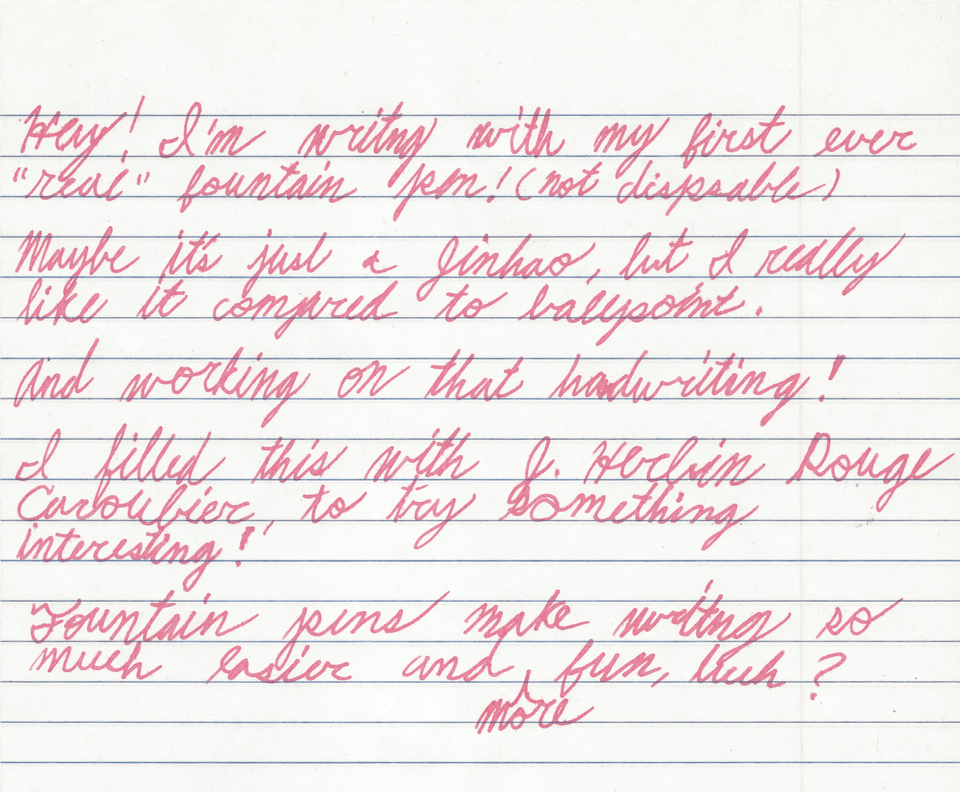 Hey! I'm writng with my first ever
"real" fountain pen! (not dispsable)
Maybe it's just a Jinhao, but I really
like it compared to ballpoint.
And working on that handwriting!
I filled this with J. Herbin Rouge
Caroubier, to try something
interesting!
Fountain pens make writng so
much easier and fun, huh?
more